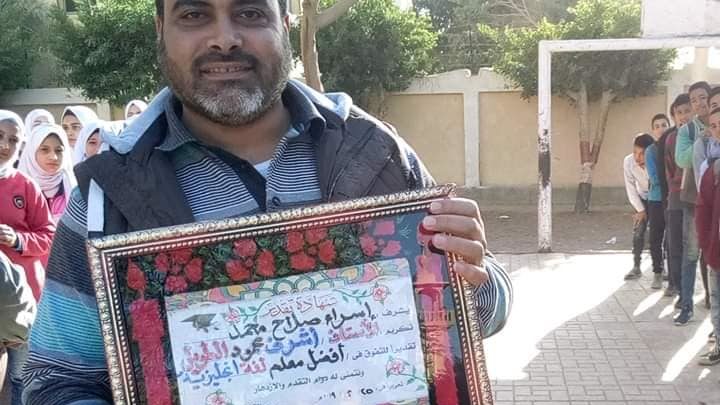 شهادة تقدير
تتشرف / إسراء صلاح محمد
لتكريم الأستاذ / أشرف محمود الطويل
تقديرا للتفوق فى / أفضل معلم لغة انجليزية
ونتمنى له دوام التقدم والازدهار